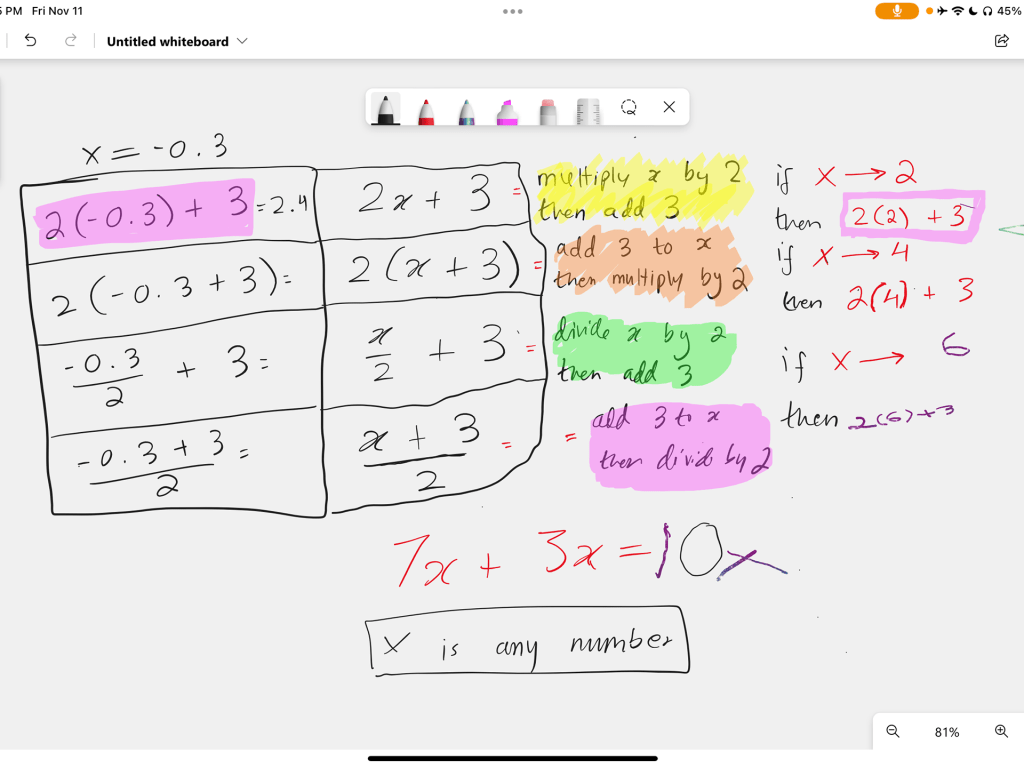 5 PM Fri Nov 11
45%
Untitled whiteboard
x = -0.3
2(-0.3) + 3 = 2.4
2(-0.3 + 3) =
-0.3/2 + 3 =
-0.3 + 3/2 =
2x + 3 =
2(x + 3) =
x/2 + 3 =
x + 3/2 =
multiply x by 2
then add 3
add 3 to x
then multiply by 2
divide x by 2
then add 3
= add 3 to x
then divide by 2
if x → 2
then 2(2) + 3
if x → 4
then 2(4) + 3
if x → 6
then 2(6)+3
7x + 3x = 10x
x is any number
81%